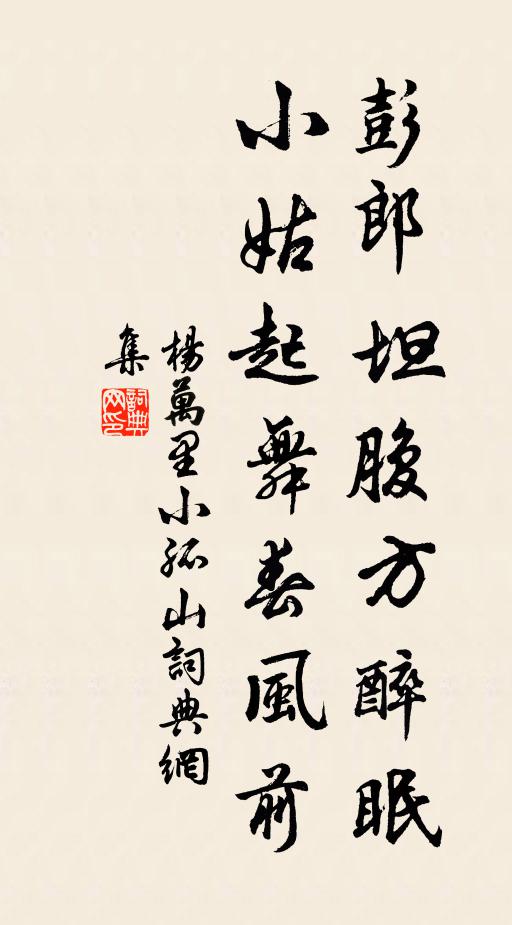 彭郎坦腹方醉眠
小姑起舞春風前
楊萬里小孤山詞典網
集
詞典
網印